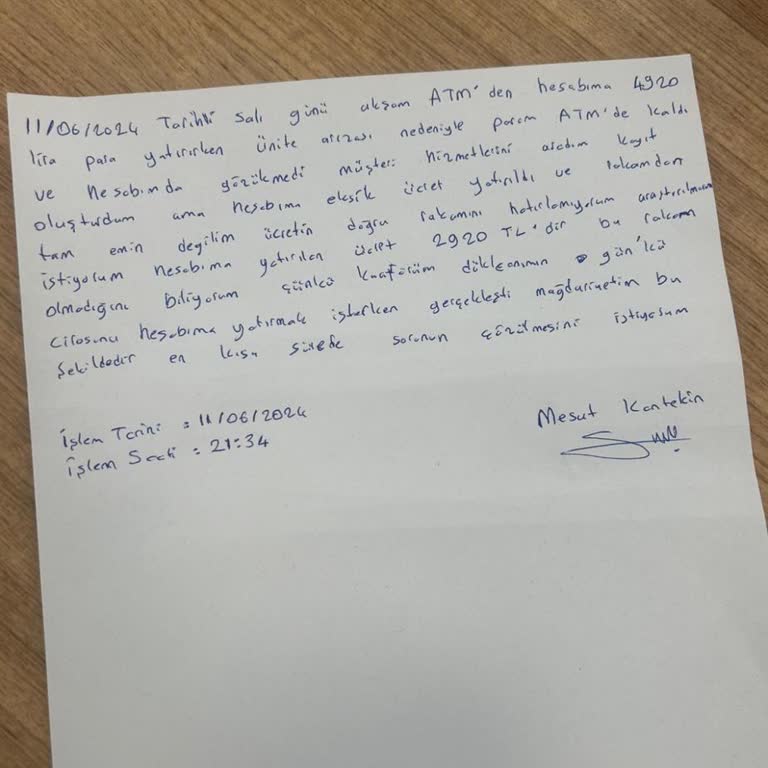 11/06/2024 Tarihli Salı günü akşam ATM'den hesabıma 4920
lira para yatırırken Ünite arızası nedeniyle param ATM'de kaldı
ve hesabımda gözükmedi müşteri hizmetlerini aradım kayıt
oluşturdum ama hesabıma eksik ücret yatırıldı ve rakamdan
tam emin değilim ücretin doğru rakamını hatırlamıyorum araştırılmasını
istiyorum hesabıma yatırılan ücret 2920 TL'dir bu rakam
olmadığını biliyorum çünkü kuaförüm dükkanımın gün'lük
cirosunu hesabıma yatırmak isterken gerçekleşti mağduriyetim bu
şekildedir en kısa sürede sorunun çözülmesini istiyorum
İşlem Tarihi : 11/06/2024
İşlem Saati : 21:34
Mesut Kantekin